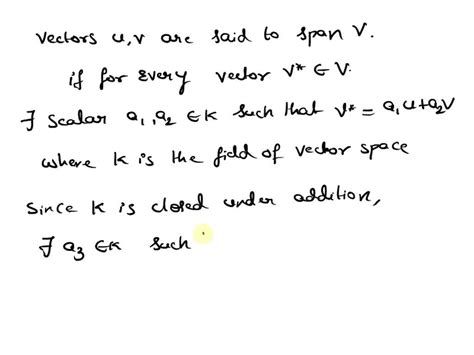 Vectors u,v are said to span V.
if for every vector v* ∈ V.
∃ Scalar a₁,a₂ ∈ K such that v* = a₁u+a₂v
where K is the field of vector space
Since K is closed under addition,
∃ a₃ ∈ K such